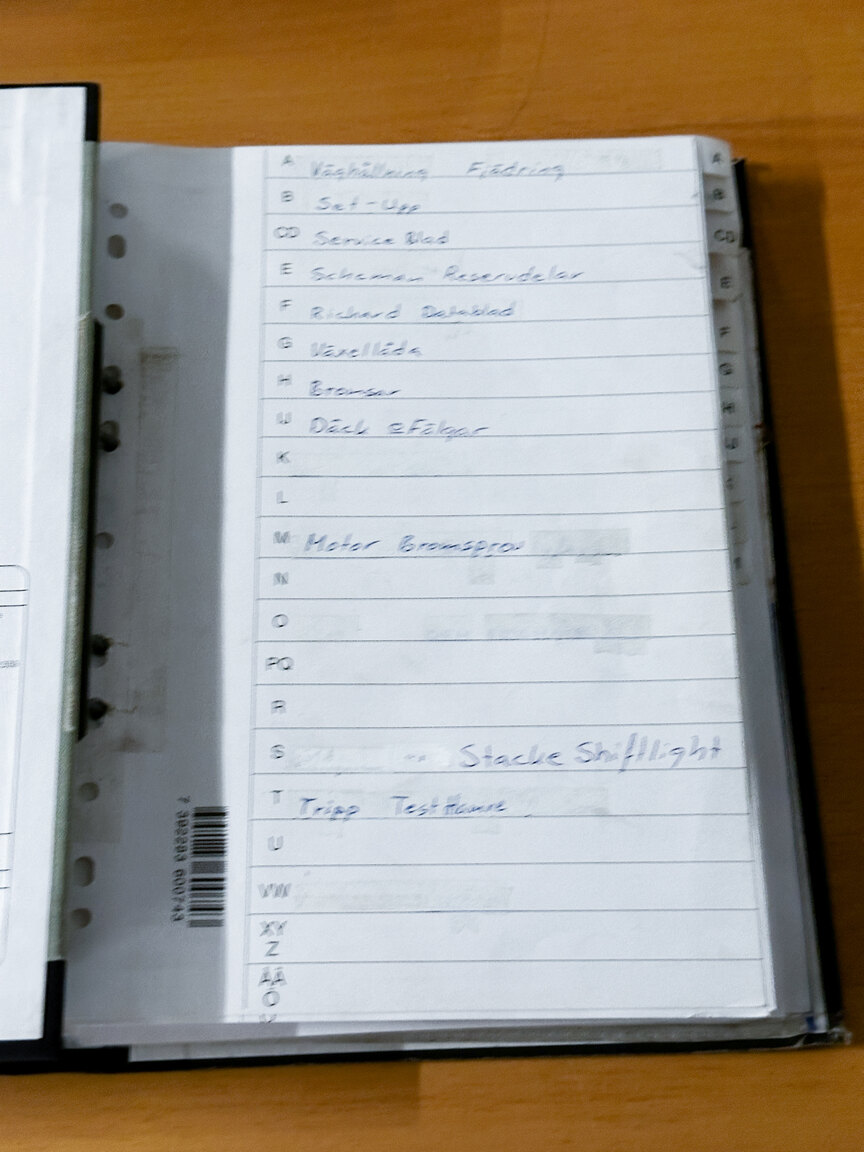 A Väghållning Fjädring
B Set-Upp
CD Service Blad
E Scheman Reservdelar
F Richard Datablad
G Växellåda
H Bromsar
IJ Däck & Fälgar
K
L
M Motor Bromsprov
N
O
PQ
R
S Stacke Shiftlight
T Tripp
U
VW
XY
Z
ÅÄ
Ö
A
B
CD
E
F
G
H
IJ